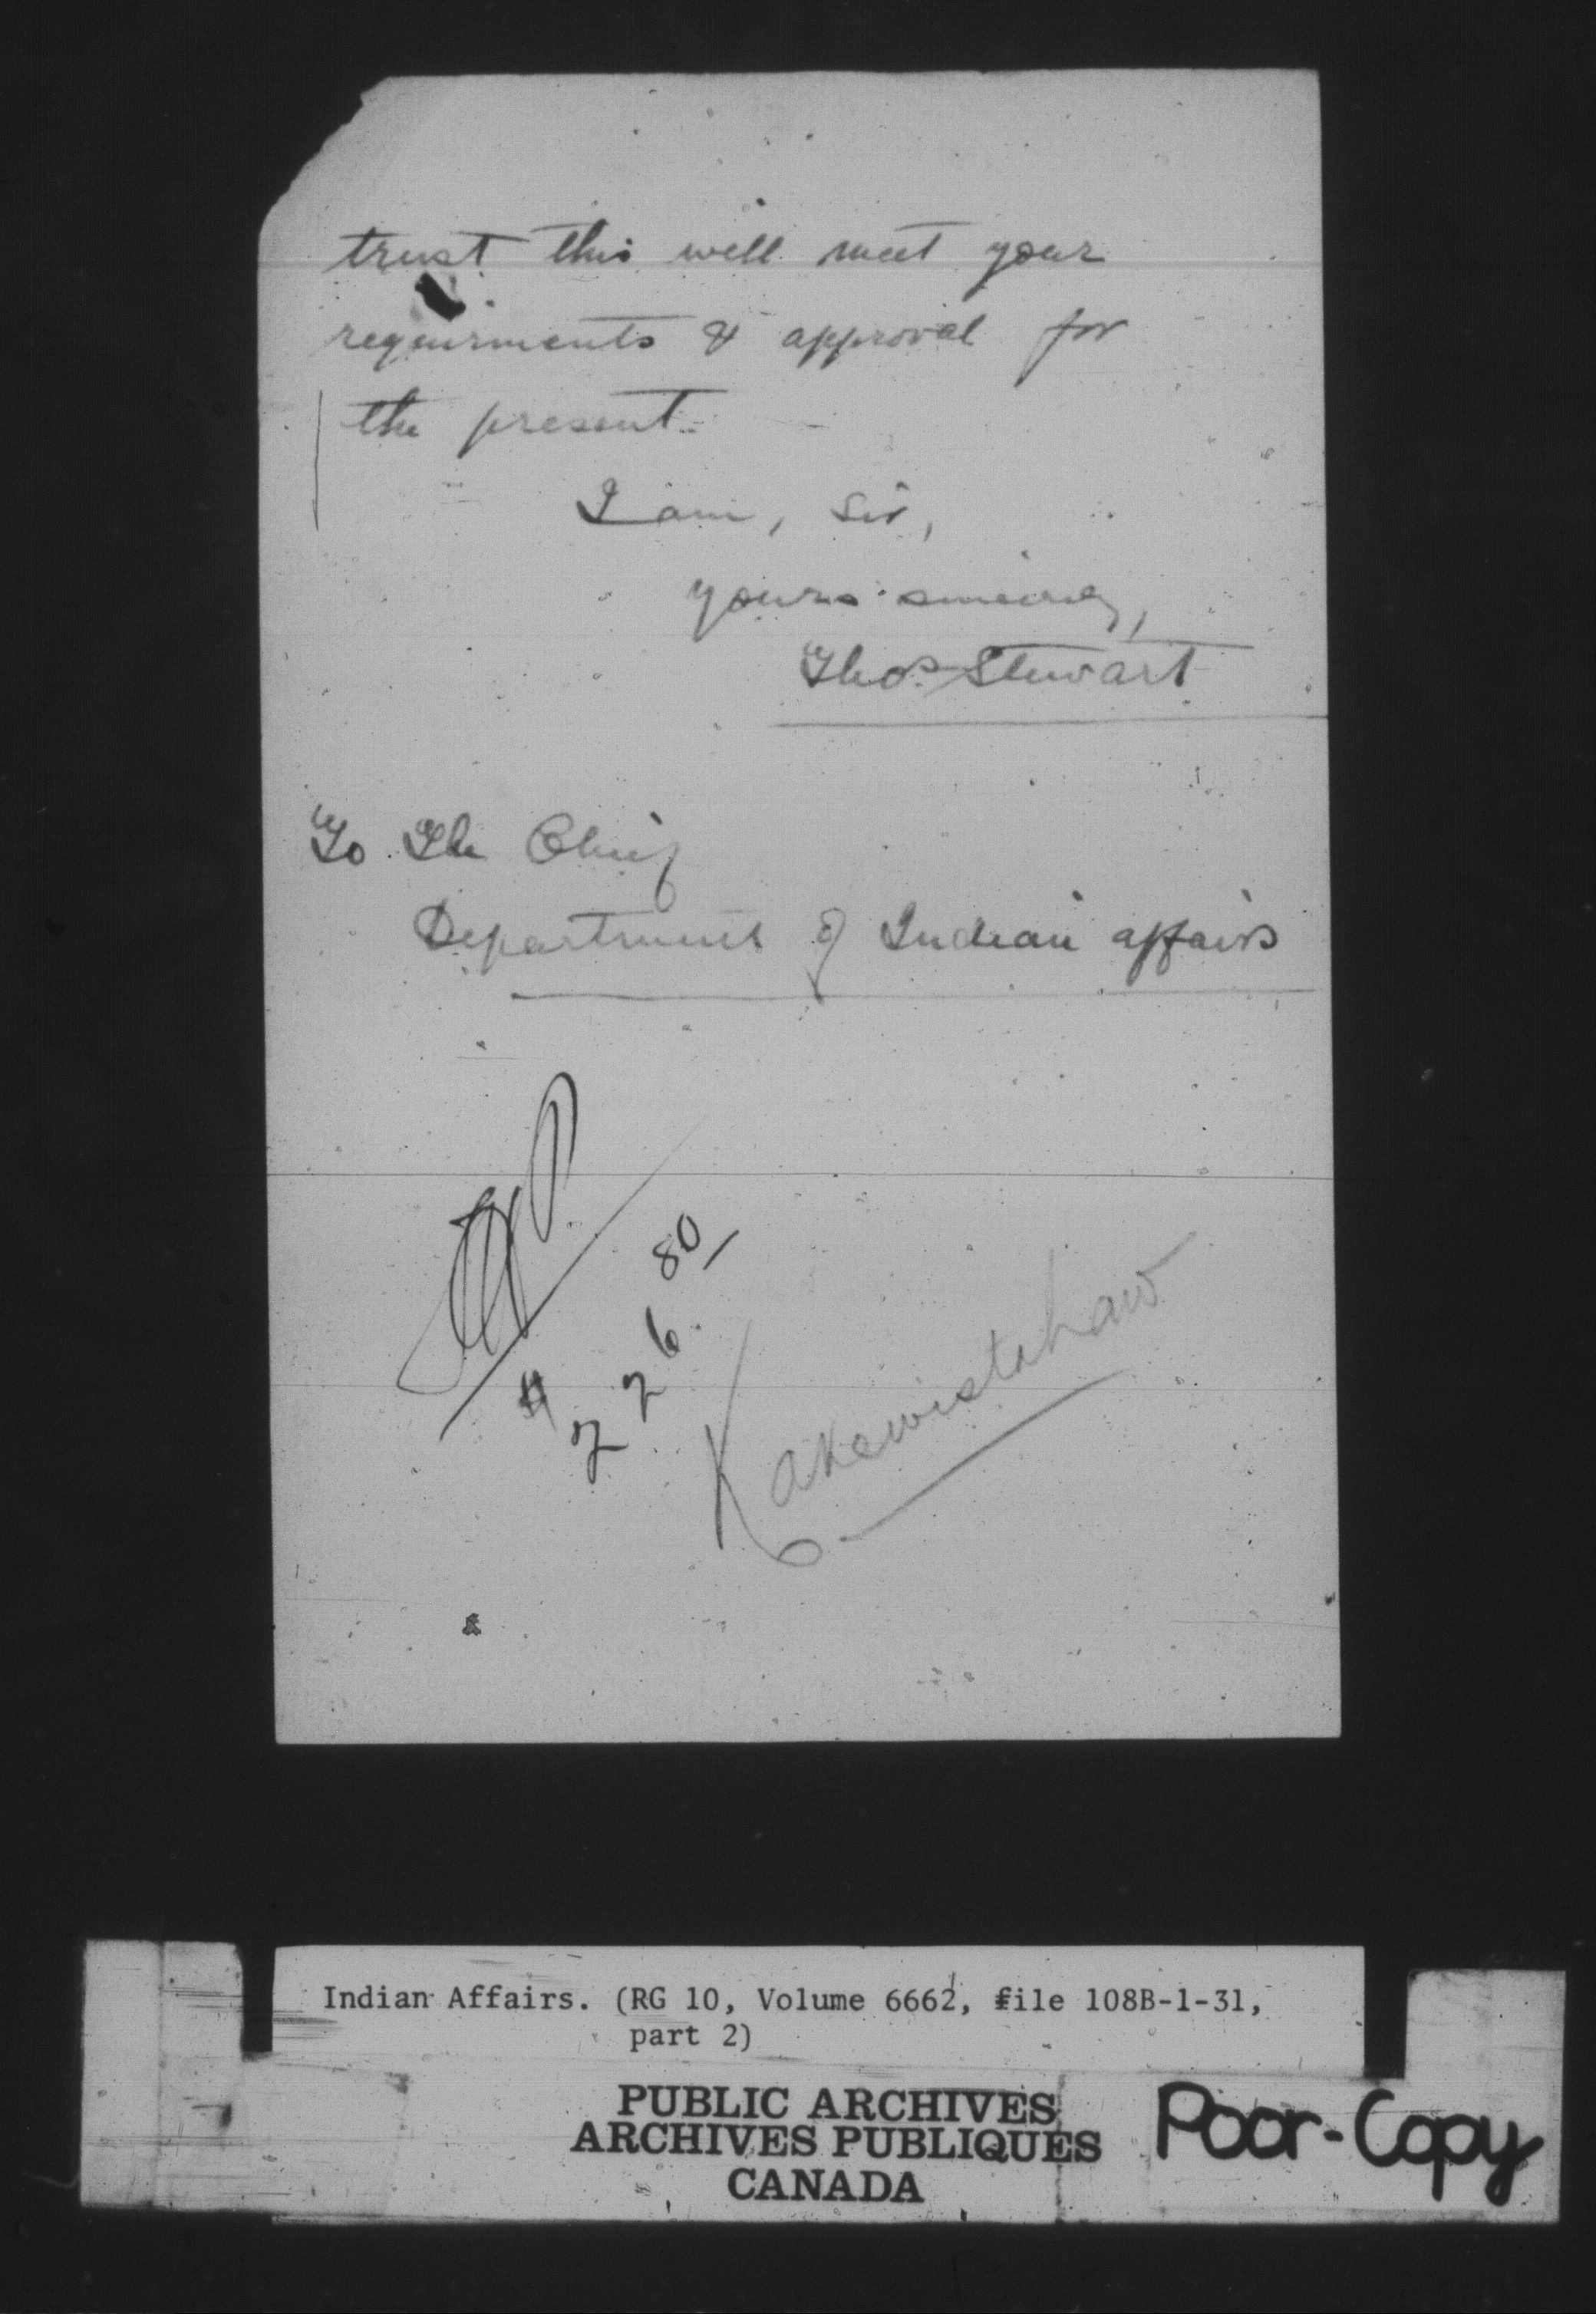 trust this will meet your
requirments & approval for
the present.
I am, Sir,
yours sincerely,
Thos. Stewart
To The Chief
Department of Indian affairs
$226.80
Kakewistahaw
Indian Affairs. (RG 10, Volume 6662, file 108B-1-31,
part 2)
PUBLIC ARCHIVES
ARCHIVES PUBLIQUES
CANADA
Poor-Copy